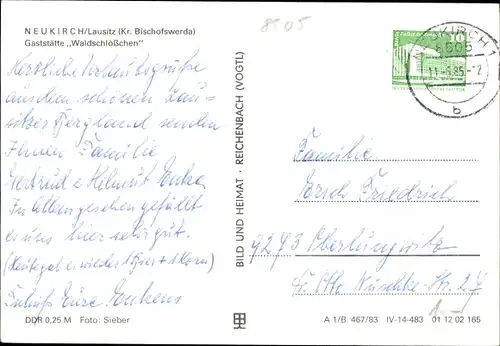 NEUKIRCH/Lausitz (Kr. Bischofswerda)
Gaststätte „Waldschlößchen"
8505
Herzliche Urlaubsgrüße
aus dem schönen Lau-
sitzer Bergland senden
Ihnen Familie
Gertrud u. Helmut
Im Allgemeinen gefällt
es uns hier sehr gut.
(Heute gab es wieder 1 Bier + 1 Korn)
Eure
DDR 0,25 M Foto: Sieber
BILD UND HEIMAT · REICHENBACH (VOGTL)
10
NEUKIRCH 1
8505
b
Familie
Erich Friedrich
9273 Oberlungwitz
Dr. Otto Nuschke-Str. 27
1.-
A 1/B 467/83 IV-14-483 01 12 02 165